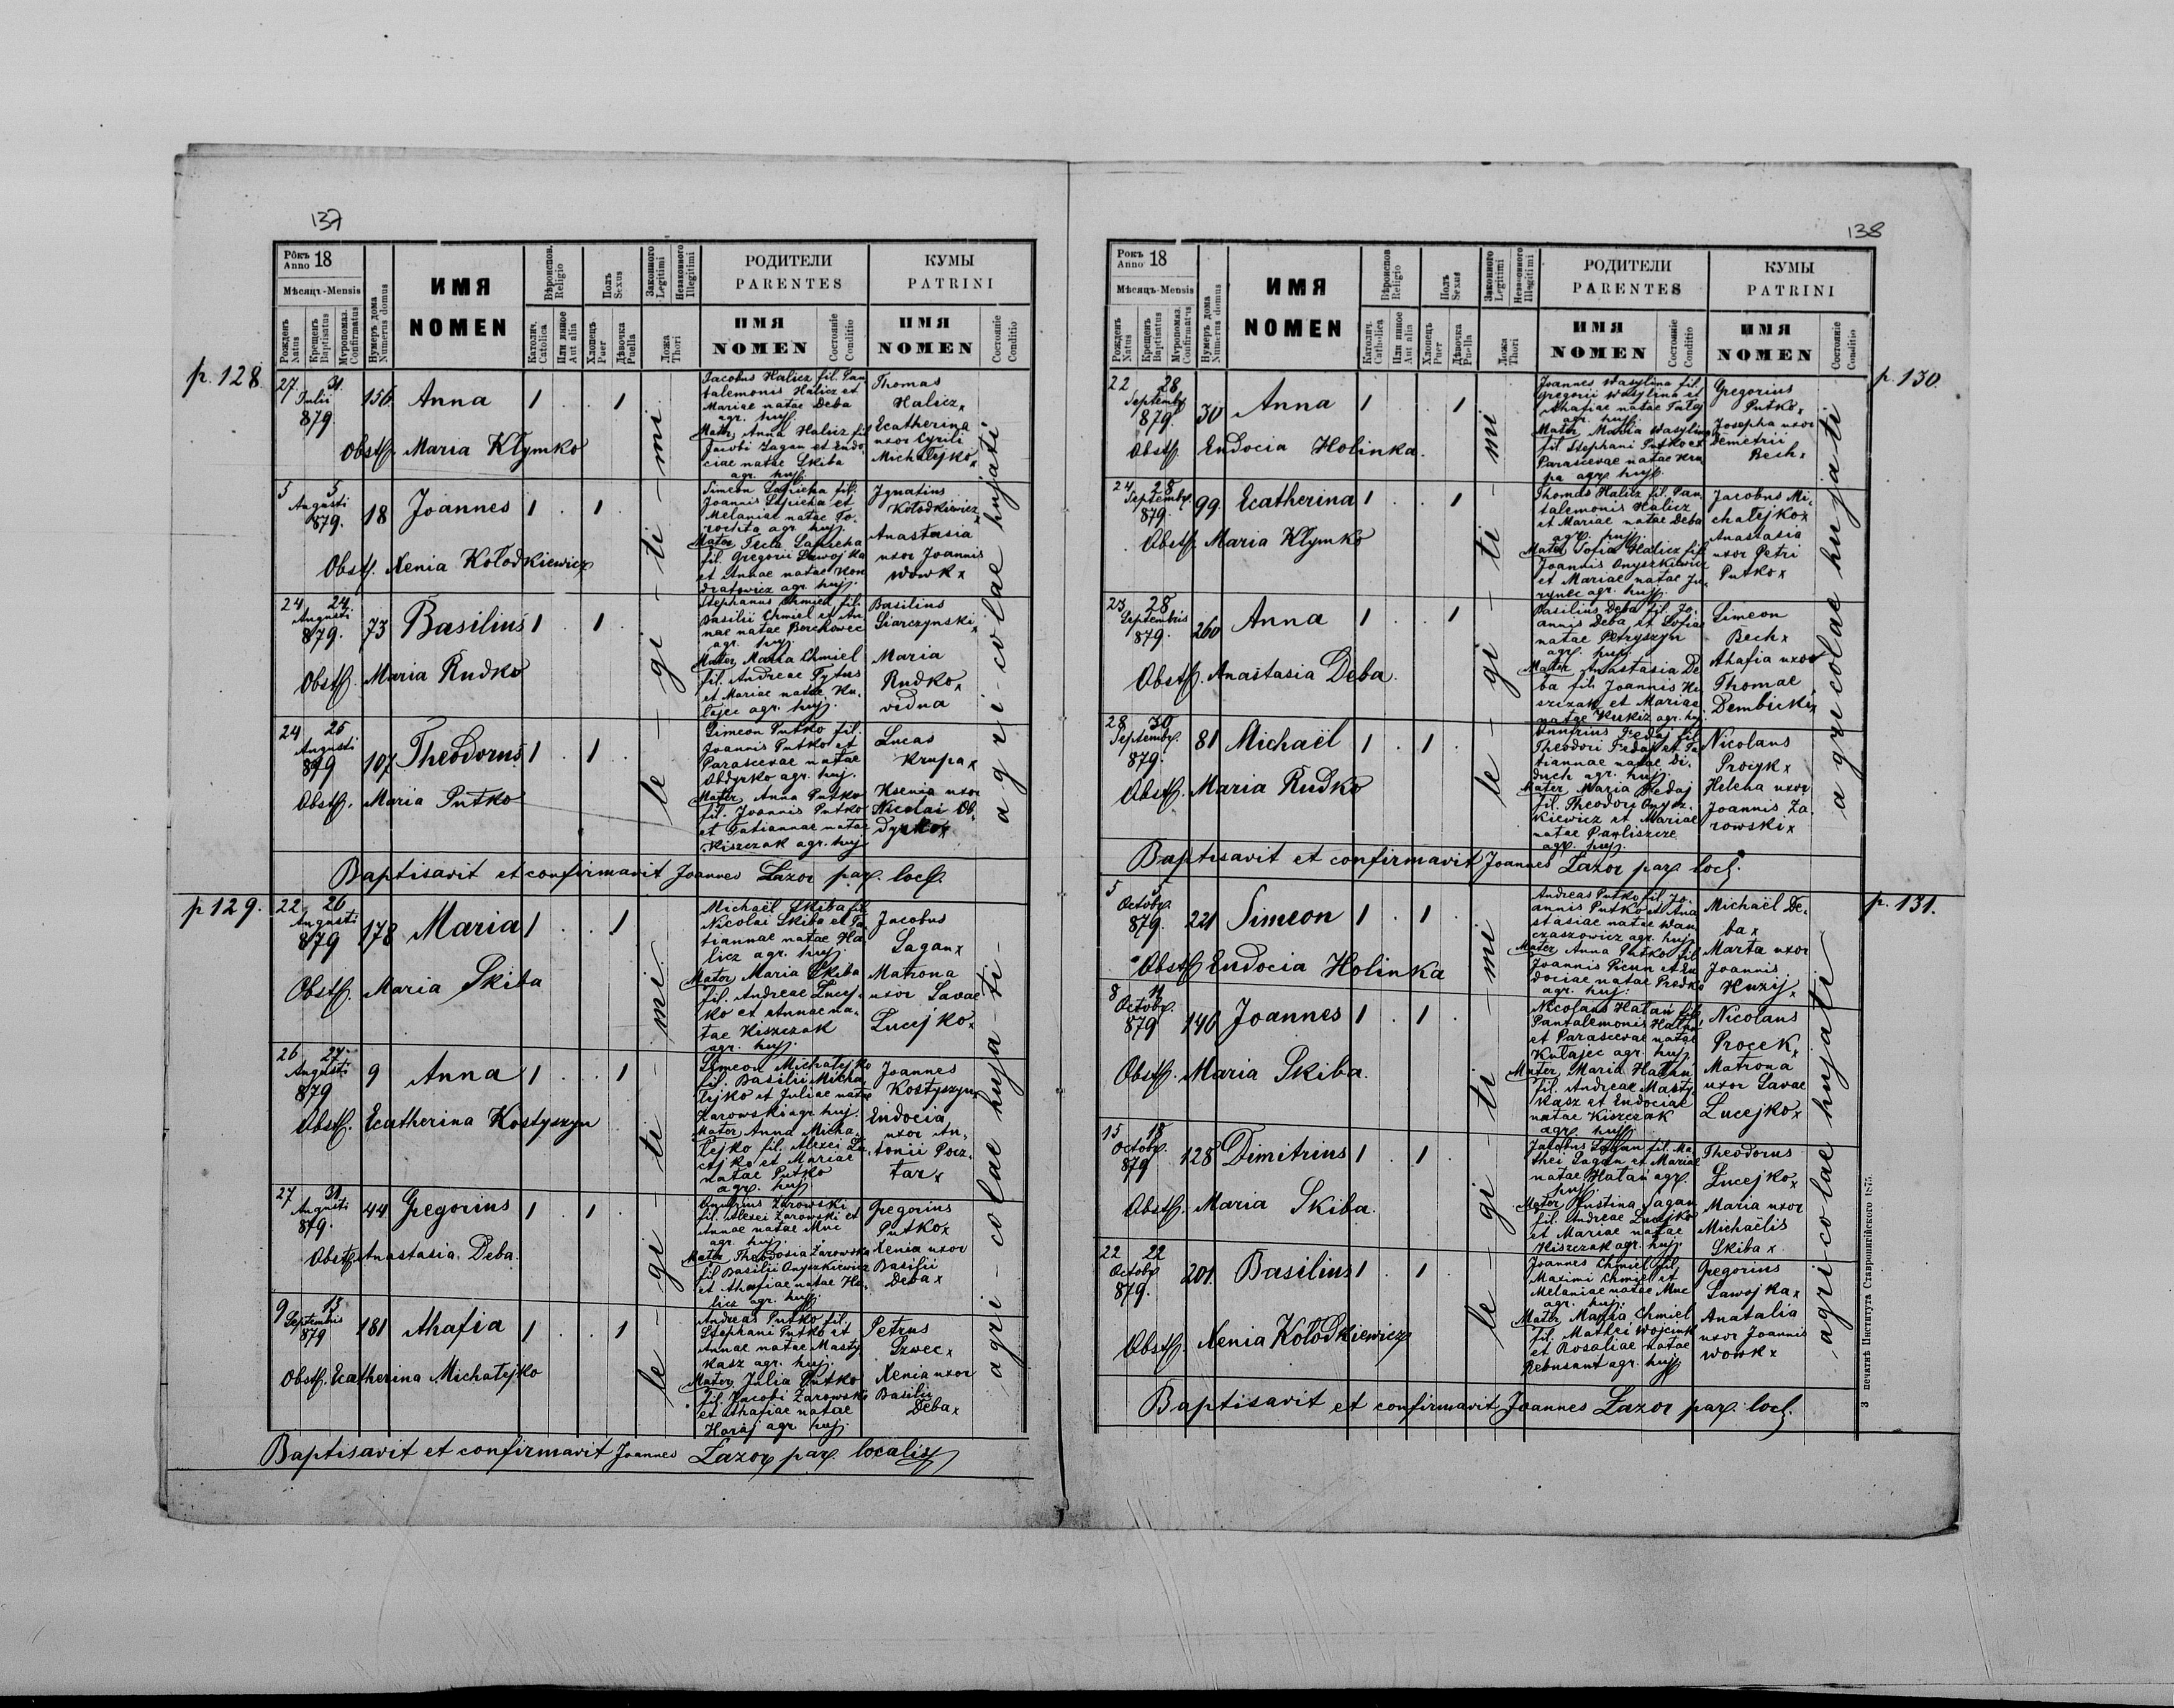 137
Рôкъ
Anno 18
Мѣсяцъ-Mensis
Рожденъ
Natus
Крещенъ
Baptisatus
Мѵропомаз.
Confirmatus
Нумеръ дома
Numerus domus
ИМЯ
NOMEN
Вѣроиспов.
Religio
Католич.
Catholica
Или инное
Aut alia
Полъ
Sexus
Хлопецъ
Puer
Дѣвочка
Puella
Законного
Legitimi
Незаконного
Illegitimi
Ложа
Thori
РОДИТЕЛИ
PARENTES
ИМЯ
NOMEN
Состоянíе
Conditio
КУМЫ
PATRINI
ИМЯ
NOMEN
Состоянíе
Conditio
p. 128.
27 31
Julii
879
156
Anna
1 . . 1
Jacobus Halicz fil. Pan
talemonis Halicz et
Mariae natae Deba
agr. huj.
Mater Anna Halicz fil
Jacobi Zagan et Eudo
ciae natae Skiba
agr. huj.
Thomas
Halicz x
Ecatherina
uxor Cyrili
Michalejko x
Obst. Maria Klymko
5 5
Augusti
879.
18
Joannes
1 . 1 .
Simeon Sapicha fil.
Joannis Sapicha et
Melaniae natae To-
rochta agr. huj.
Mater Tecla Sapicha
fil. Gregorii Sawojka
et Annae natae Kon
dratowicz agr. huj.
Ignatius
Kołodkiewicz x
Anastasia
uxor Joannis
Wowk x
Obst. Xenia Kołodkiewicz
24 24
Augusti
879.
73
Basilius
1 . 1 .
Stephanus Chmiel fil.
Basilii Chmiel et An
nae natae Berchowec
agr. huj.
Mater Maria Chmiel
fil. Andreae Tytus
et Mariae natae Ku-
lajec agr. huj.
Basilius
Siarczynski x
Maria
Rudko x
vidua
Obst. Maria Rudko
24 26
Augusti
879
107
Theodorus
1 . 1 .
Simeon Putko fil.
Joannis Putko et
Parascevae natae
Obdyrko agr. huj.
Mater Anna Putko
fil. Joannis Putko
et Tatiannae natae
Kiszczak agr. huj
Lucas
Krupa x
Ksenia uxor
Nicolai Ob-
dyrko x
Obst. Maria Putko
le - gi - ti - mi
agri-colae hujati
Baptisavit et confirmavit Joannes Lazor par. loc.
p 129.
22 26
Augusti
879
178
Maria
1 . . 1
Michaël Skiba fil
Nicolai Skiba et Ta
tiannae natae Ha
licz agr. huj
Mater Maria Skiba
fil. Andreae Lucej-
ko et Annae na-
tae Kiszczak
agr. huj.
Jacobus
Sagan x
Matrona
uxor Savae
Lucejko x
Obst. Maria Skiba
26 27
Augusti
879
9
Anna
1 . . 1
Simeon Michalejko
fil. Basilii Micha
lejko et Juliae natae
Żarowski agr huj.
Mater Anna Micha-
lejko fil. Alexei Lu-
cejko et Mariae
natae Putko
agr. huj
Joannes
Kostyszyn x
Eudocia
uxor An-
tonii Pocz-
tar x
Obst. Ecatherina Kostyszyn
27 31
Augusti
879.
44
Gregorius
1 . 1 .
Onufrius Żarowski
fil. Alexei Żarowski et
Annae natae Muc
agr. huj.
Mater Theodosia Żarowska
fil Basilii Onyszkiewicz
et Ahafiae natae Ha-
licz agr. huj.
Gregorius
Putko x
Xenia uxor
Basilii
Deba x
Obst. Anastasia Deba.
9 13
Septembris
879
181
Ahafia
1 . . 1
Andreas Putko fil.
Stephani Putko et
Annae natae Masty
kasz agr. huj.
Mater Julia Putko
fil. Jacobi Żarowski
et Ahafiae natae
Horaj agr huj.
Petrus
Szwec x
Xenia uxor
Basilii
Deba x
Obst. Ecatherina Michalejko
le - gi - ti - mi
agri - colae huja-ti-
Baptisavit et confirmavit Joannes Lazor par. localis
138
Рокъ
Anno 18
Мѣсяцъ-Mensis
Рожденъ
Natus
Крещенъ
Baptisatus
Мѵропомаз.
Confirmatus
Нумеръ дома
Numerus domus
ИМЯ
NOMEN
Вѣроиспов
Religio
Католич.
Catholica
Или инное
Aut alia
Полъ
Sexus
Хлопецъ
Puer
Дѣвочка
Puella
Законного
Legitimi
Незаконного
Illegitimi
Ложа
Thori
РОДИТЕЛИ
PARENTES
ИМЯ
NOMEN
Состоянíе
Conditio
КУМЫ
PATRINI
ИМЯ
NOMEN
Состоянíе
Conditio
p. 130.
22 28
Septemb.
879.
30
Anna
1 . . 1
Joannes Wasylina fil.
Gregorii Wasylina et
Ahafiae natae Fulej
agr. huj.
Mater Maria Wasylina
fil Stephani Putko et
Parascevae natae Kru
pa agr. huj.
Gregorius
Putko x
Josepha uxor
Demetrii
Bech x
Obst. Eudocia Holinka.
24 28
Septemb.
879.
99.
Ecatherina
1 . . 1
Thomas Halicz fil. Pan
talemonis Halicz
et Mariae natae Deba
agr. huj.
Mater Sofia Halicz fil
Joannis Onyszkiewicz
et Mariae natae Ju-
rynec agr. huj.
Jacobus Mi-
chalejko x
Anastasia
uxor Petri
Putko x
Obst. Maria Klymko
23 28
Septembris
879.
260
Anna
1 . . 1
Basilius Deba fil. Jo-
annis Deba et Sofiae
natae Petryszyn
agr. huj.
Mater Anastasia De
ba fil. Joannis Ki
szczak et Mariae
natae Kukiz agr. huj.
Simeon
Bech x
Ahafia uxor
Thomae
Dembicki x
Obst. Anastasia Deba.
28 30
Septemb.
879.
81
Michaël
1 . 1 .
Onufrius Fedaj fil
Theodori Fedaj et Ta
tiannae natae Di-
duch agr. huj.
Mater Maria Fedaj
fil. Theodori Onysz-
kiewicz et Mariae
natae Pawliszcze
agr. huj.
Nicolaus
Procyk x
Helena uxor
Joannis Za-
rowski x
Obst. Maria Rudko
le - gi - ti - mi
agricolae hujati
Baptisavit et confirmavit Joannes Lazor par. loc.
p. 131.
5 5
Octobr.
879.
221
Simeon
1 . 1 .
Andreas Putko fil. Jo-
annis Putko et Ana
stasiae natae Wan
czaszowicz agr. huj
Mater Anna Putko fil
Joannis Picun et Eu
dociae natae Predko
agr. huj.
Michaël De-
ba x
Marta uxor
Joannis
Huzij x
Obst. Eudocia Holinka
8 11
Octobr.
879
146
Joannes
1 . 1 .
Nicolaus Hatan fil.
Pantalemonis Hatan
et Parascevae natae
Kulajec agr. huj.
Mater Maria Hatan
fil. Andreae Masty
kasz et Eudociae
natae Kiszczak
agr. huj.
Nicolaus
Procek x
Matrona
uxor Savae
Lucejko x
Obst. Maria Skiba.
15 18
Octobr.
879
128
Dimitrius
1 . 1 .
Jacobus Sagan fil. Ma
thei Sagan et Mariae
natae Hatan agr.
huj.
Mater Justina Sagan
fil. Andreae Lucejko
et Mariae natae
Kiszczak agr. huj.
Theodorus
Lucejko x
Maria uxor
Michaëlis
Skiba x
Obst. Maria Skiba.
22 22
Octobr
879.
201.
Basilius
1 . 1 .
Joannes Chmiel fil.
Maximi Chmiel et
Melaniae natae Muc
agr. huj.
Mater Maria Chmiel
fil. Mathei Wojciuk
et Rosaliae natae
Rebusant agr. huj
Gregorius
Sawojka x
Anatalia
uxor Joannis
Wowk x
Obst. Xenia Kołodkiewicz
le - gi - ti - mi
agricolae hujati
Baptisavit et confirmavit Joannes Lazor par. loc.
З печатнѣ Института Ставропигíйского 1875.